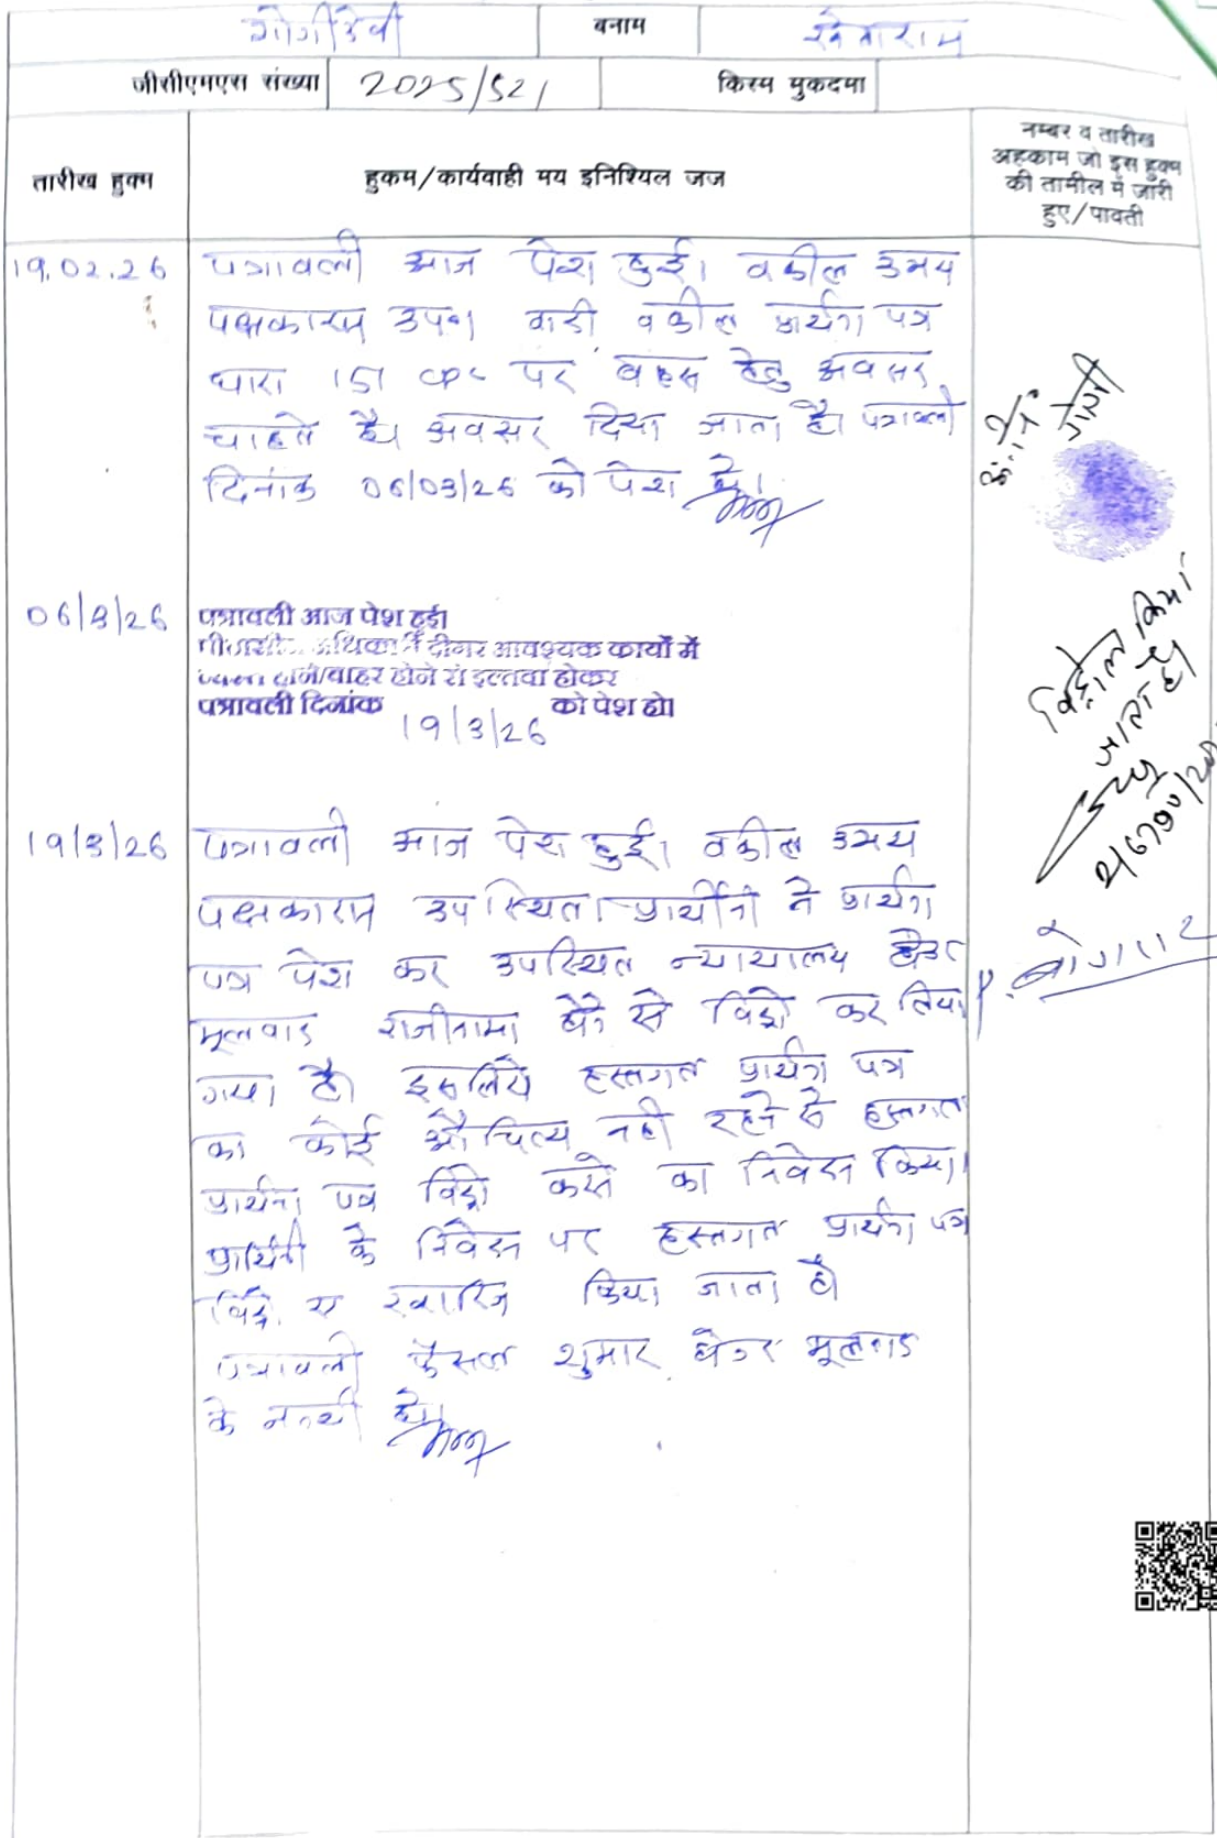 गोगीदेवी बनाम खेताराम
जीसीएमएस संख्या 2025/521 किस्म मुकदमा
तारीख हुक्म हुकम/कार्यवाही मय इनिशियल जज नम्बर व तारीख
अहकाम जो इस हुक्म
की तामील में जारी
हुए/पावती
19.02.26 पत्रावली आज पेश हुई। वकील उभय
पक्षकारान उप०। वादी वकील प्रार्थना पत्र
धारा 151 CPC पर बहस हेतु अवसर
चाहते है। अवसर दिया जाता है। पत्रावली
दिनांक 06/03/26 को पेश हो।
06/3/26 पत्रावली आज पेश हुई।
दीगर आवश्यक कार्यों में
होने/बाहर होने से इल्तवा होकर
पत्रावली दिनांक 19/3/26 को पेश हो।
विड्रोल किया
जाता है।
19/3/26 पत्रावली आज पेश हुई। वकील उभय
पक्षकारान उपस्थित। प्रार्थीनी ने प्रार्थना
पत्र पेश कर उपस्थित न्यायालय होकर
मूलवाद राजीनामा होने से विड्रो कर लिया
गया है। इसलिये हस्तगत प्रार्थना पत्र
का कोई औचित्य नही रहने से हस्तगत
प्रार्थना पत्र विड्रो करने का निवेदन किया।
प्रार्थिनी के निवेदन पर हस्तगत प्रार्थना पत्र
विड्रो खारिज किया जाता है।
पत्रावली फैसल शुमार होकर मूलवाद
के नत्थी हो।